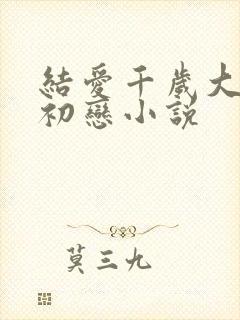 結愛千歲大
初戀小説
莫三九